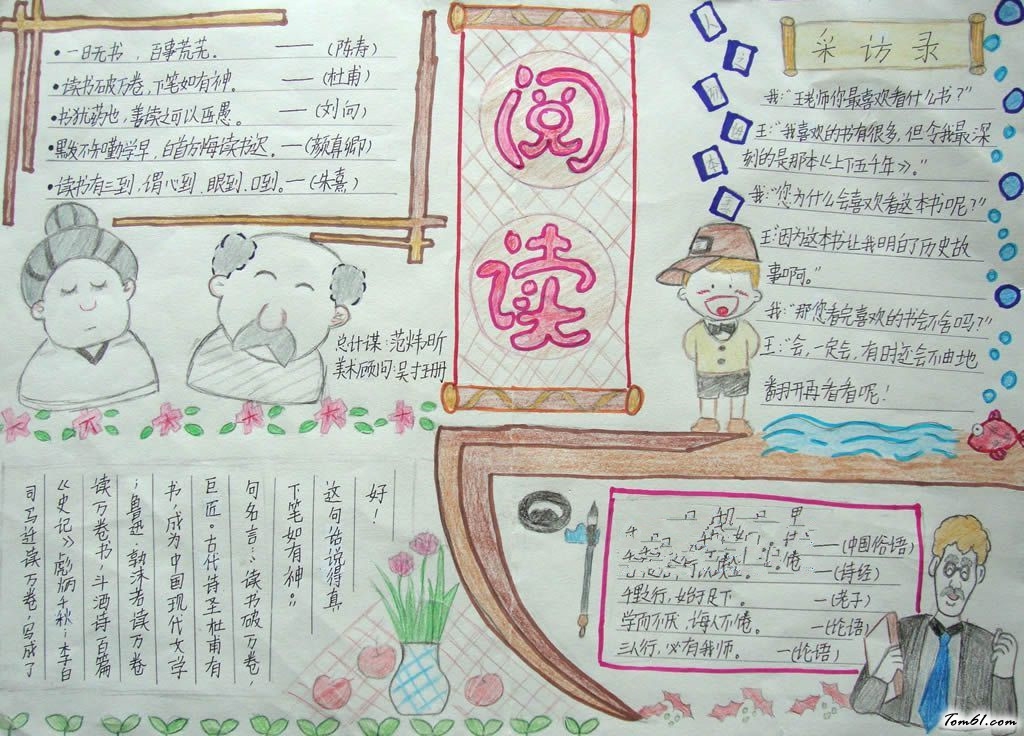 一日无书，百事荒芜。——(陈寿)
读书破万卷，下笔如有神。——(杜甫)
书犹药也，善读之可以医愚。——(刘向)
黑发不知勤学早，白首方悔读书迟。——(颜真卿)
读书有三到，谓心到、眼到、口到。—(朱熹)
总计谋：范炜昕
美术顾问：吴才珊
阅
读
人
之
初
性
本
善
采访录
我：“王老师你最喜欢看什么书？”
王：“我喜欢的书有很多，但令我最深
刻的是那本《上下五千年》。”
我：“您为什么会喜欢看这本书呢？”
王：“因为这本书让我明白了历史故
事啊。”
我：“那您看完喜欢的书会不舍吗？”
王：“会，一定会，有时还会不由地
翻开再看看呢！
司马迁读万卷，写成了
《史记》彪炳千秋；李白
读万卷书，斗酒诗百篇
；鲁迅、郭沫若读万卷
书，成为中国现代文学
巨匠。古代诗圣杜甫有
句名言：“读书破万卷，
下笔如有神。”
这句话说得真
好！
—(中国俗语)
—(诗经)
千里之行，始于足下。—(老子)
学而不厌，诲人不倦。—(论语)
三人行，必有我师。—(论语)
Tom61.com